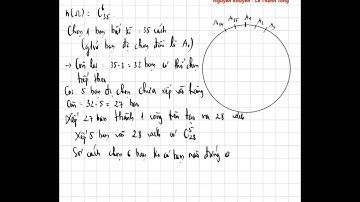 Nguyễn Khuyến - Lê Thánh Tông
n(Ω) = C⁶₃₅
Chọn 1 bạn bất kì : 35 cách
(giả sử bạn đc chọn đầu là A₁)
→ Còn lại : 35-3 = 32 bạn có thể chọn
tiếp theo
Gọi 5 bạn đc chọn chưa xếp vô hàng
Còn : 32-5 = 27 bạn
Xếp 27 bạn thành 1 vòng tròn tạo ra 28 vách
Xếp 5 bạn vào 28 vách có C⁵₂₈
Số cách chọn 6 bạn ko có bạn nào đứng
A₃₄ A₃₅ A₁ A₂ A₃